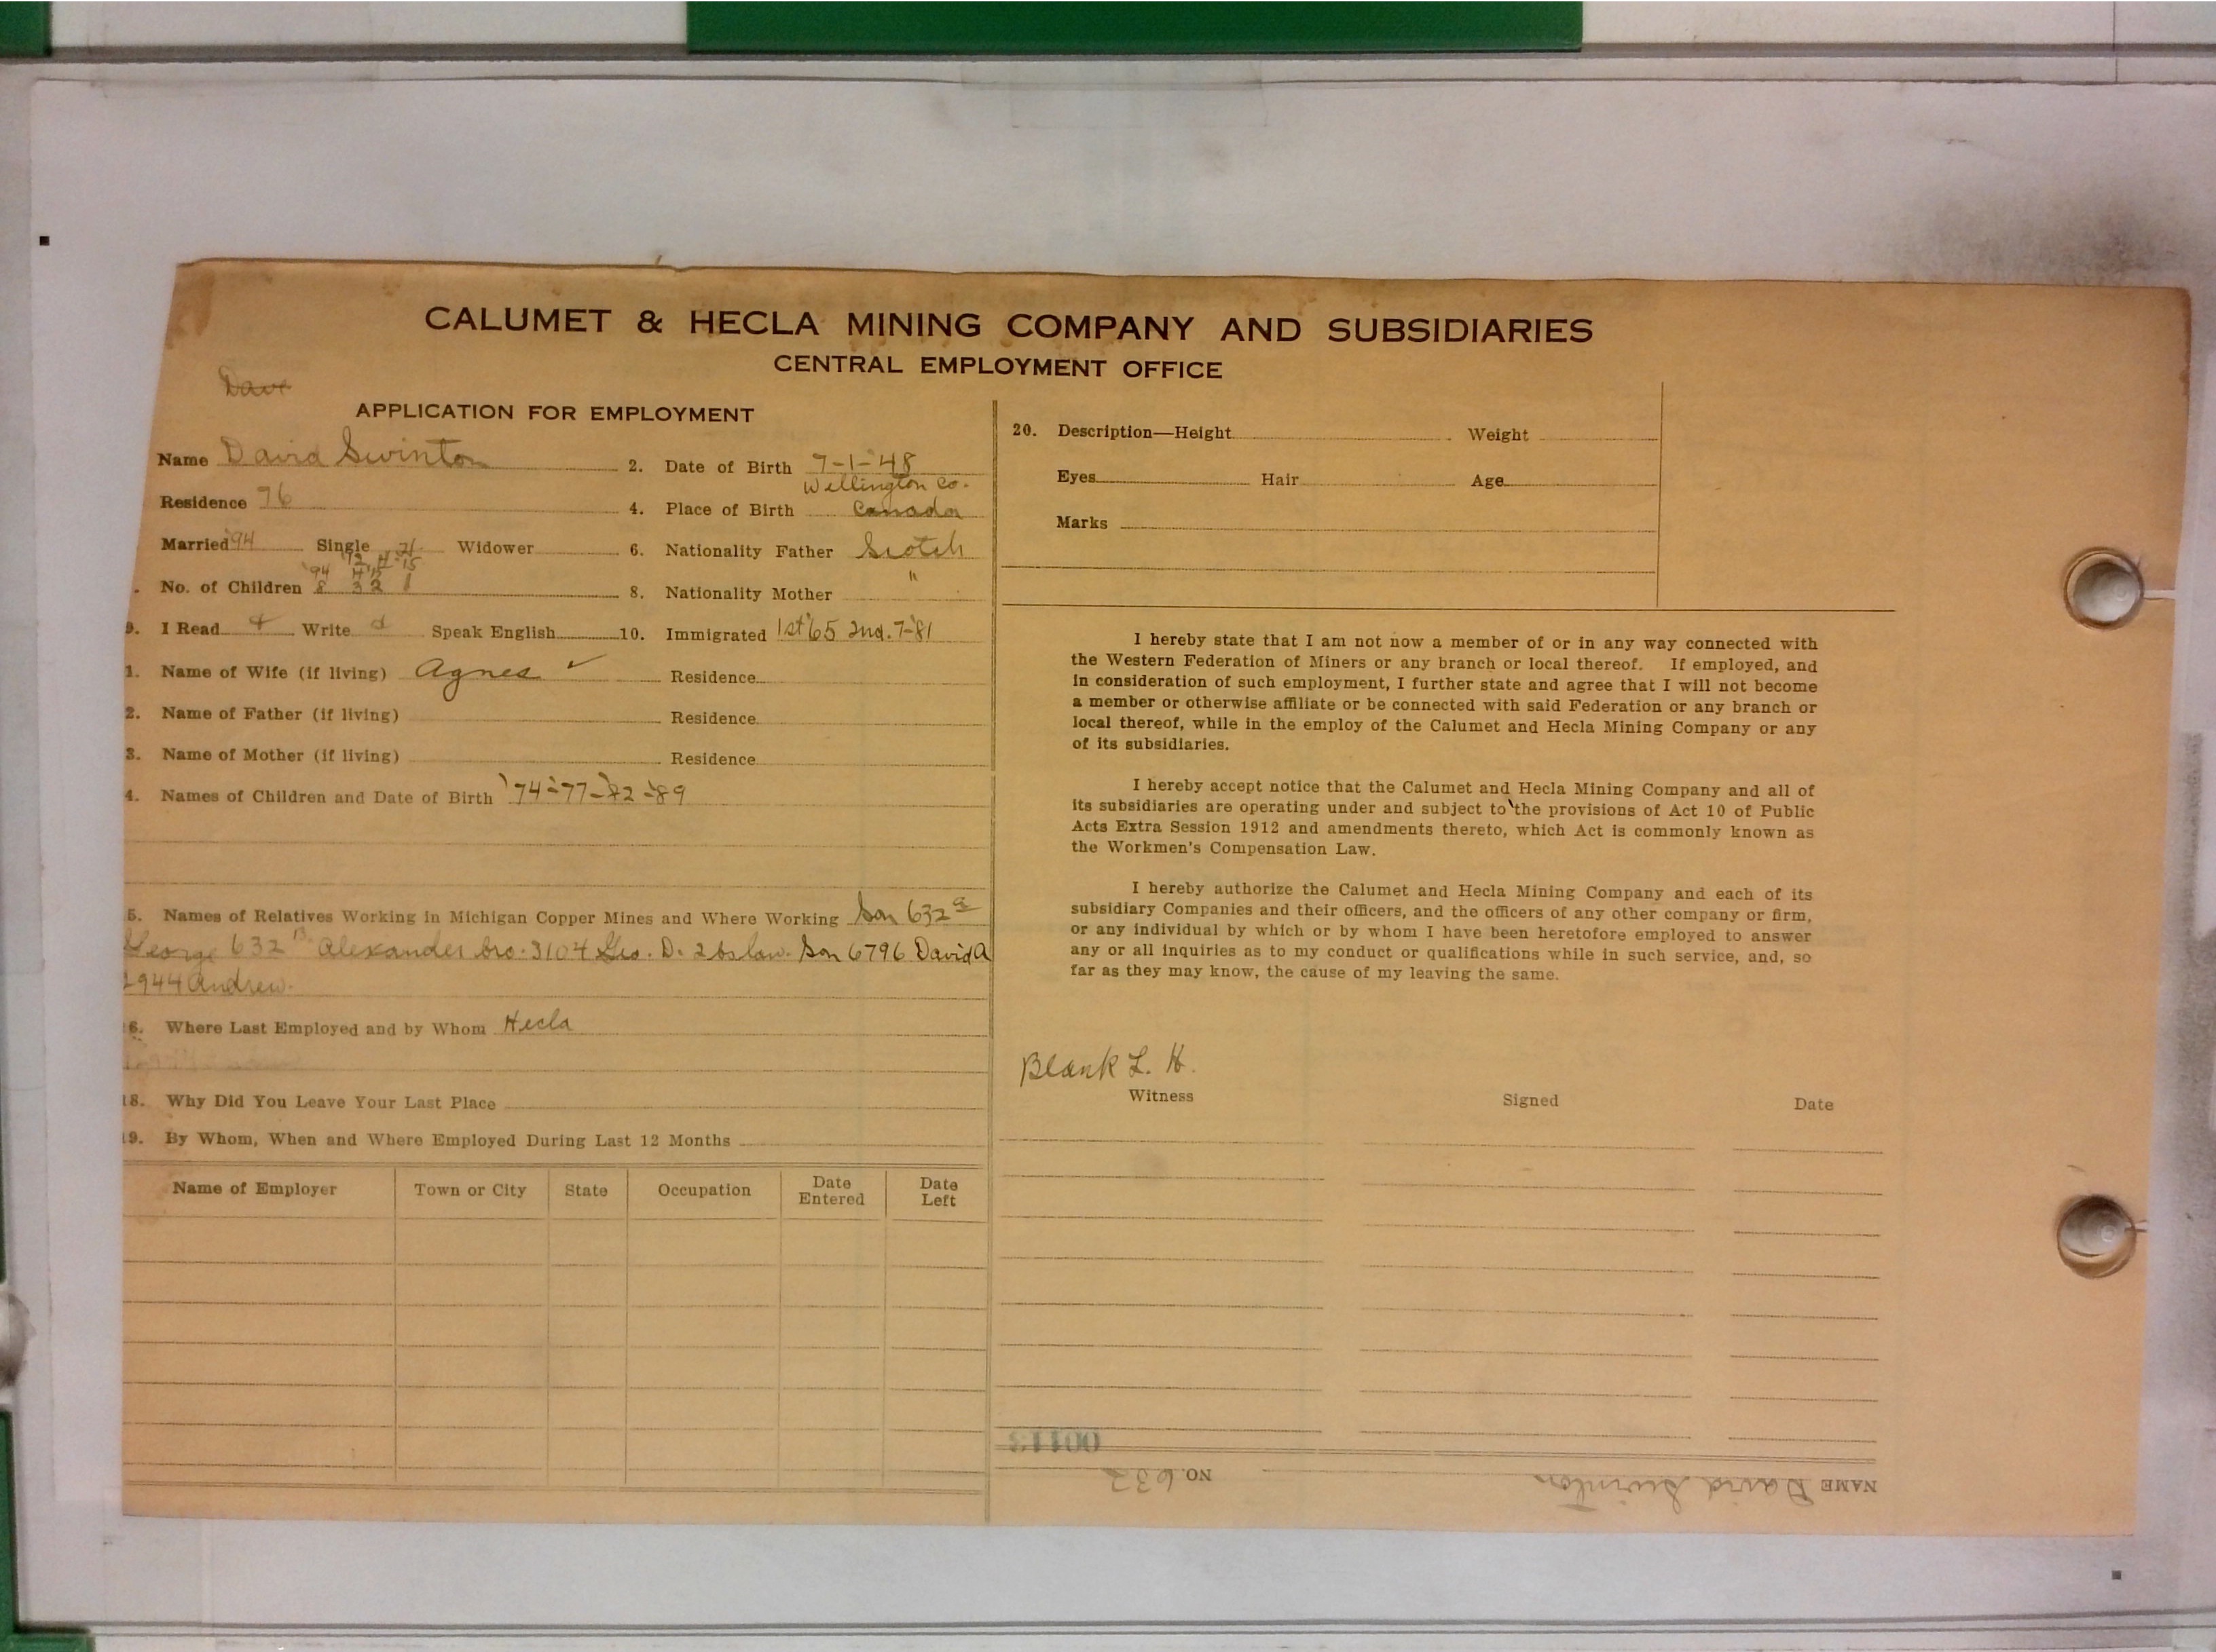 CALUMET & HECLA MINING COMPANY AND SUBSIDIARIES
CENTRAL EMPLOYMENT OFFICE
Dave
APPLICATION FOR EMPLOYMENT
Name David Swinton 2. Date of Birth 7-1-'48
Wellington Co.
Residence 76 4. Place of Birth Canada
Married '94 Single Widower 6. Nationality Father Scotch
'94
No. of Children 8 3 2 1 8. Nationality Mother "
9. I Read Write Speak English 10. Immigrated 1st '65 2nd. 7-'81
1. Name of Wife (if living) Agnes ✓ Residence
2. Name of Father (if living) Residence
3. Name of Mother (if living) Residence
4. Names of Children and Date of Birth '74-'77-'82-'89
5. Names of Relatives Working in Michigan Copper Mines and Where Working Son 632 a
George 632 B Alexander bro. 3104 Geo. D. Son 6796 David A
2944 Andrew.
16. Where Last Employed and by Whom Hecla
18. Why Did You Leave Your Last Place
19. By Whom, When and Where Employed During Last 12 Months
Name of Employer Town or City State Occupation Date Entered Date Left
20. Description—Height Weight
Eyes Hair Age
Marks
I hereby state that I am not now a member of or in any way connected with
the Western Federation of Miners or any branch or local thereof. If employed, and
in consideration of such employment, I further state and agree that I will not become
a member or otherwise affiliate or be connected with said Federation or any branch or
local thereof, while in the employ of the Calumet and Hecla Mining Company or any
of its subsidiaries.
I hereby accept notice that the Calumet and Hecla Mining Company and all of
its subsidiaries are operating under and subject to the provisions of Act 10 of Public
Acts Extra Session 1912 and amendments thereto, which Act is commonly known as
the Workmen's Compensation Law.
I hereby authorize the Calumet and Hecla Mining Company and each of its
subsidiary Companies and their officers, and the officers of any other company or firm,
or any individual by which or by whom I have been heretofore employed to answer
any or all inquiries as to my conduct or qualifications while in such service, and, so
far as they may know, the cause of my leaving the same.
Blank L. H.
Witness Signed Date
00113
NAME David Swinton NO. 632